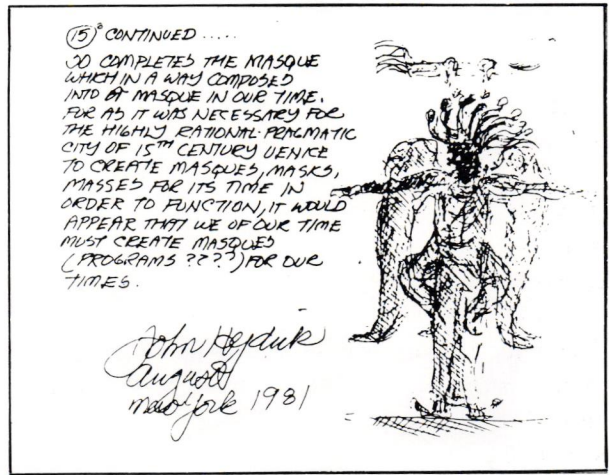 15° CONTINUED .....
SO COMPLETES THE MASQUE
WHICH IN A WAY COMPOSED
INTO A MASQUE IN OUR TIME.
FOR AS IT WAS NECESSARY FOR
THE HIGHLY RATIONAL-PRAGMATIC
CITY OF 15TH CENTURY VENICE
TO CREATE MASQUES, MASKS,
MASSES FOR ITS TIME IN
ORDER TO FUNCTION, IT WOULD
APPEAR THAT WE OF OUR TIME
MUST CREATE MASQUES
(PROGRAMS ????) FOR OUR
TIMES.
John Hejduk
August
New York 1981